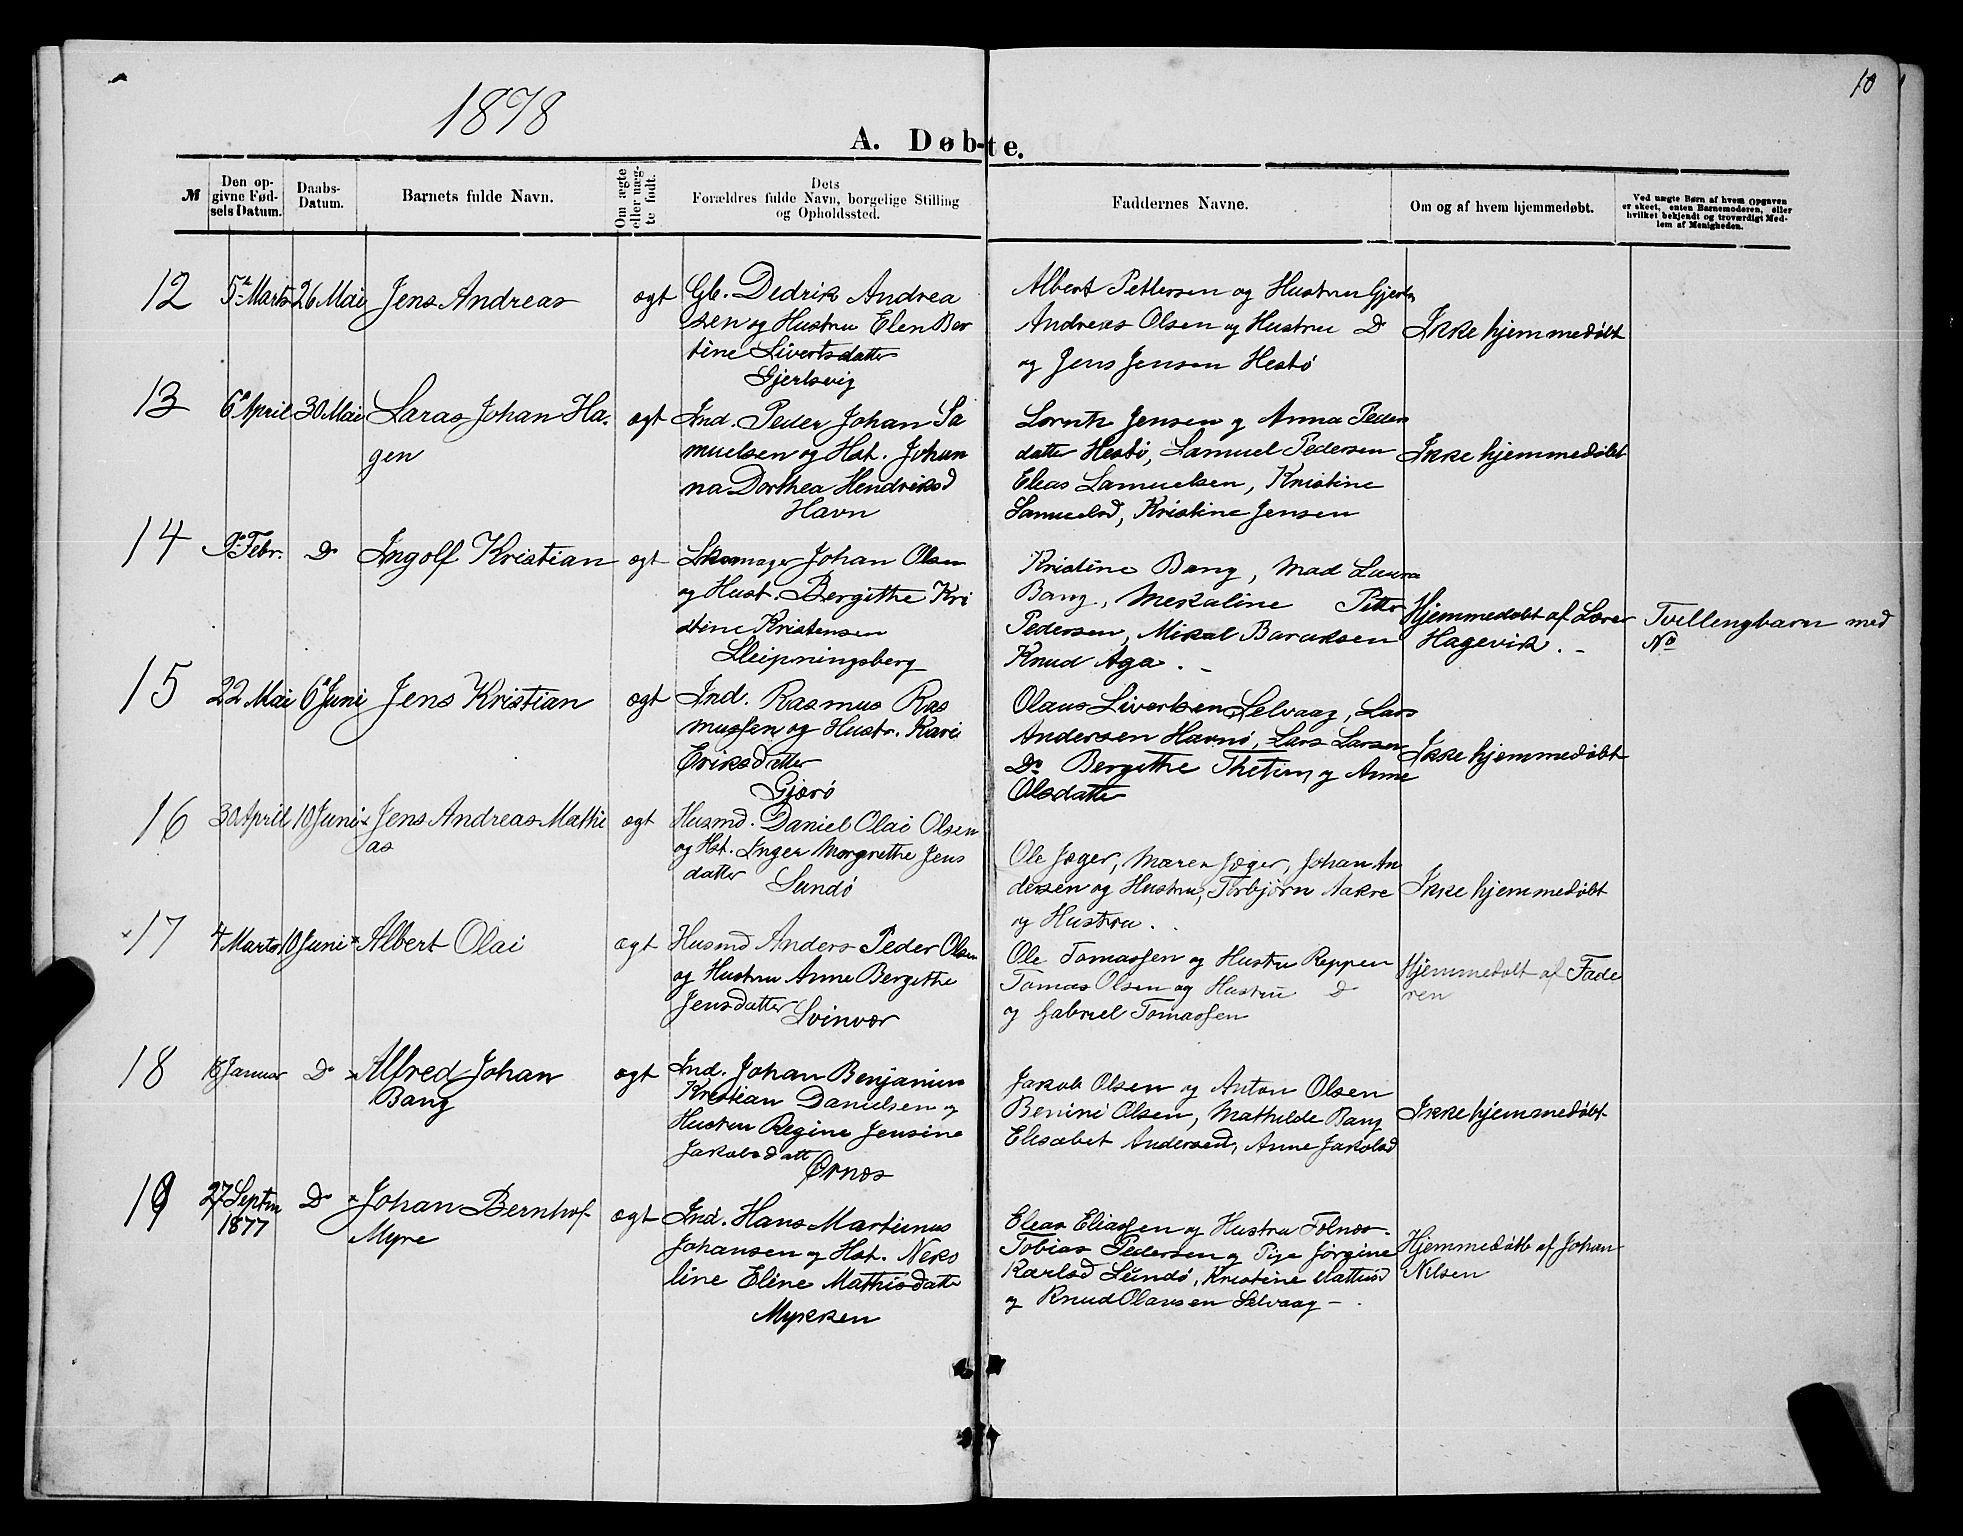 10
1878
A. Døbte.
№
Den opgivne Fødsels Datum.
Daabs-Datum.
Barnets fulde Navn.
Om ægte eller uægte født.
Dets Forældres fulde Navn, borgelige Stilling og Opholdssted.
Faddernes Navne.
Om og af hvem hjemmedøbt.
Ved uægte Børn af hvem Opgaven er skeet, enten Barnemoderen, eller hvilket bekjendt og troværdigt Medlem af Menigheden.
12
5te Marts
26 Mai
Jens Andreas
ægt
Gb. Dedrik Andrea
sen og Hustru Elen Ber
tine Livertsdatter
Gjertsvig
Albert Pettersen og Hustru
Andreas Olsen og Hustru Do
og Jens Jensen Hestø
Ikke hjemmedøbt
13
6te April
30 Mai
Laras Johan Ha-
gen
ægt
Ind. Peder Johan Sa
muelsen og Hst. Johan
na Dorthea Hendriksd
Havn
Lorntz Jensen og Anna Peder
datter Hestø, Samuel Pedersen
Eleas Samuelsen, Kristine
Samuelsd, Kristine Jensen
Ikke hjemmedøbt
14
9de Febr.
Do
Ingolf Kristian
ægt
Skomager Johan Olsen
og Hust. Bergithe Kri
stine Kristensen
Sleipningsberg
Kristine Bang, Mad Laura
Bang, Mekaline Petter
Pedersen, Mikal Baraksen
Knud Aga.
Hjemmedøbt af Lærer
Hagevik.
Tvillengbarn med
No
15
22 Mai
6te Juni
Jens Kristian
ægt
Ind. Rasmus Ras
mussen og Hustr. Kari
Eriksdatter
Gjærø
Olaus Livertsen Selvaag, Lars
Andersen Havnø, Lars Larsen
Do Bergithe Thetim og Anne
Olsdatter
Ikke hjemmedøbt
16
30 April
10 Juni
Jens Andreas Mathi
as
ægt
Husmd. Daniel Olai Olsen
og Hst. Inger Margrethe Jens
datter
Sundø
Ole Jæger, Maren Jæger, Johan An
dersen og Hustru, Torbjørn Aakre
og Hustru.
Ikke hjemmedøbt
17
4 Marts
10 Juni
Albert Olai
ægt
Husmd Anders Peder Olsen
og Hustru Anne Bergithe
Jensdatter Svinvær
Ole Tomassen og Hustru Reppen
Tomas Olsen og Hustru Do
og Gabriel Tomassen
Hjemmedøbt af Fade
ren
18
Januar
Do
Alfred Johan
Bang
ægt
Ind. Johan Benjamin
Kristian Danielsen og
Hustru Regine Jensine
Jakobsdatt
Ørnæs
Jakob Olsen og Anton Olsen
Benine Olsen, Mathilde Bang
Elisabet Andersed, Anne Jakobsd
Ikke hjemmedøbt
19
27 Septm
1877
Do
Johan Bernhof
Myre
ægt
Ind. Hans Martinus
Johansen og Hst. Neks
line Eline Mathisdatte
Mykken
Eleas Eliassen og Hustru Tolnæs
Tobias Pedersen og Pige Jørgine
Karlsd Sundø, Kristine
og Knud Olausen Selvaag
Hjemmedøbt af Johan
Nilsen